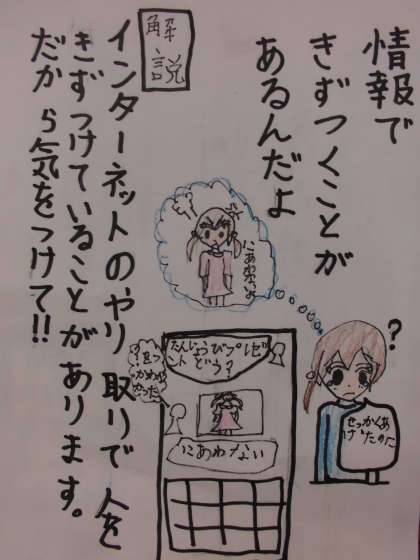 情報で
きずつくことが
あるんだよ
解説
インターネットのやり取りで人を
きずつけていることがあります。
だから気をつけて!!
にあわないよ
?
せっかくあ
げたのに
たんじょうびプレゼ
ント どう?
にあわない